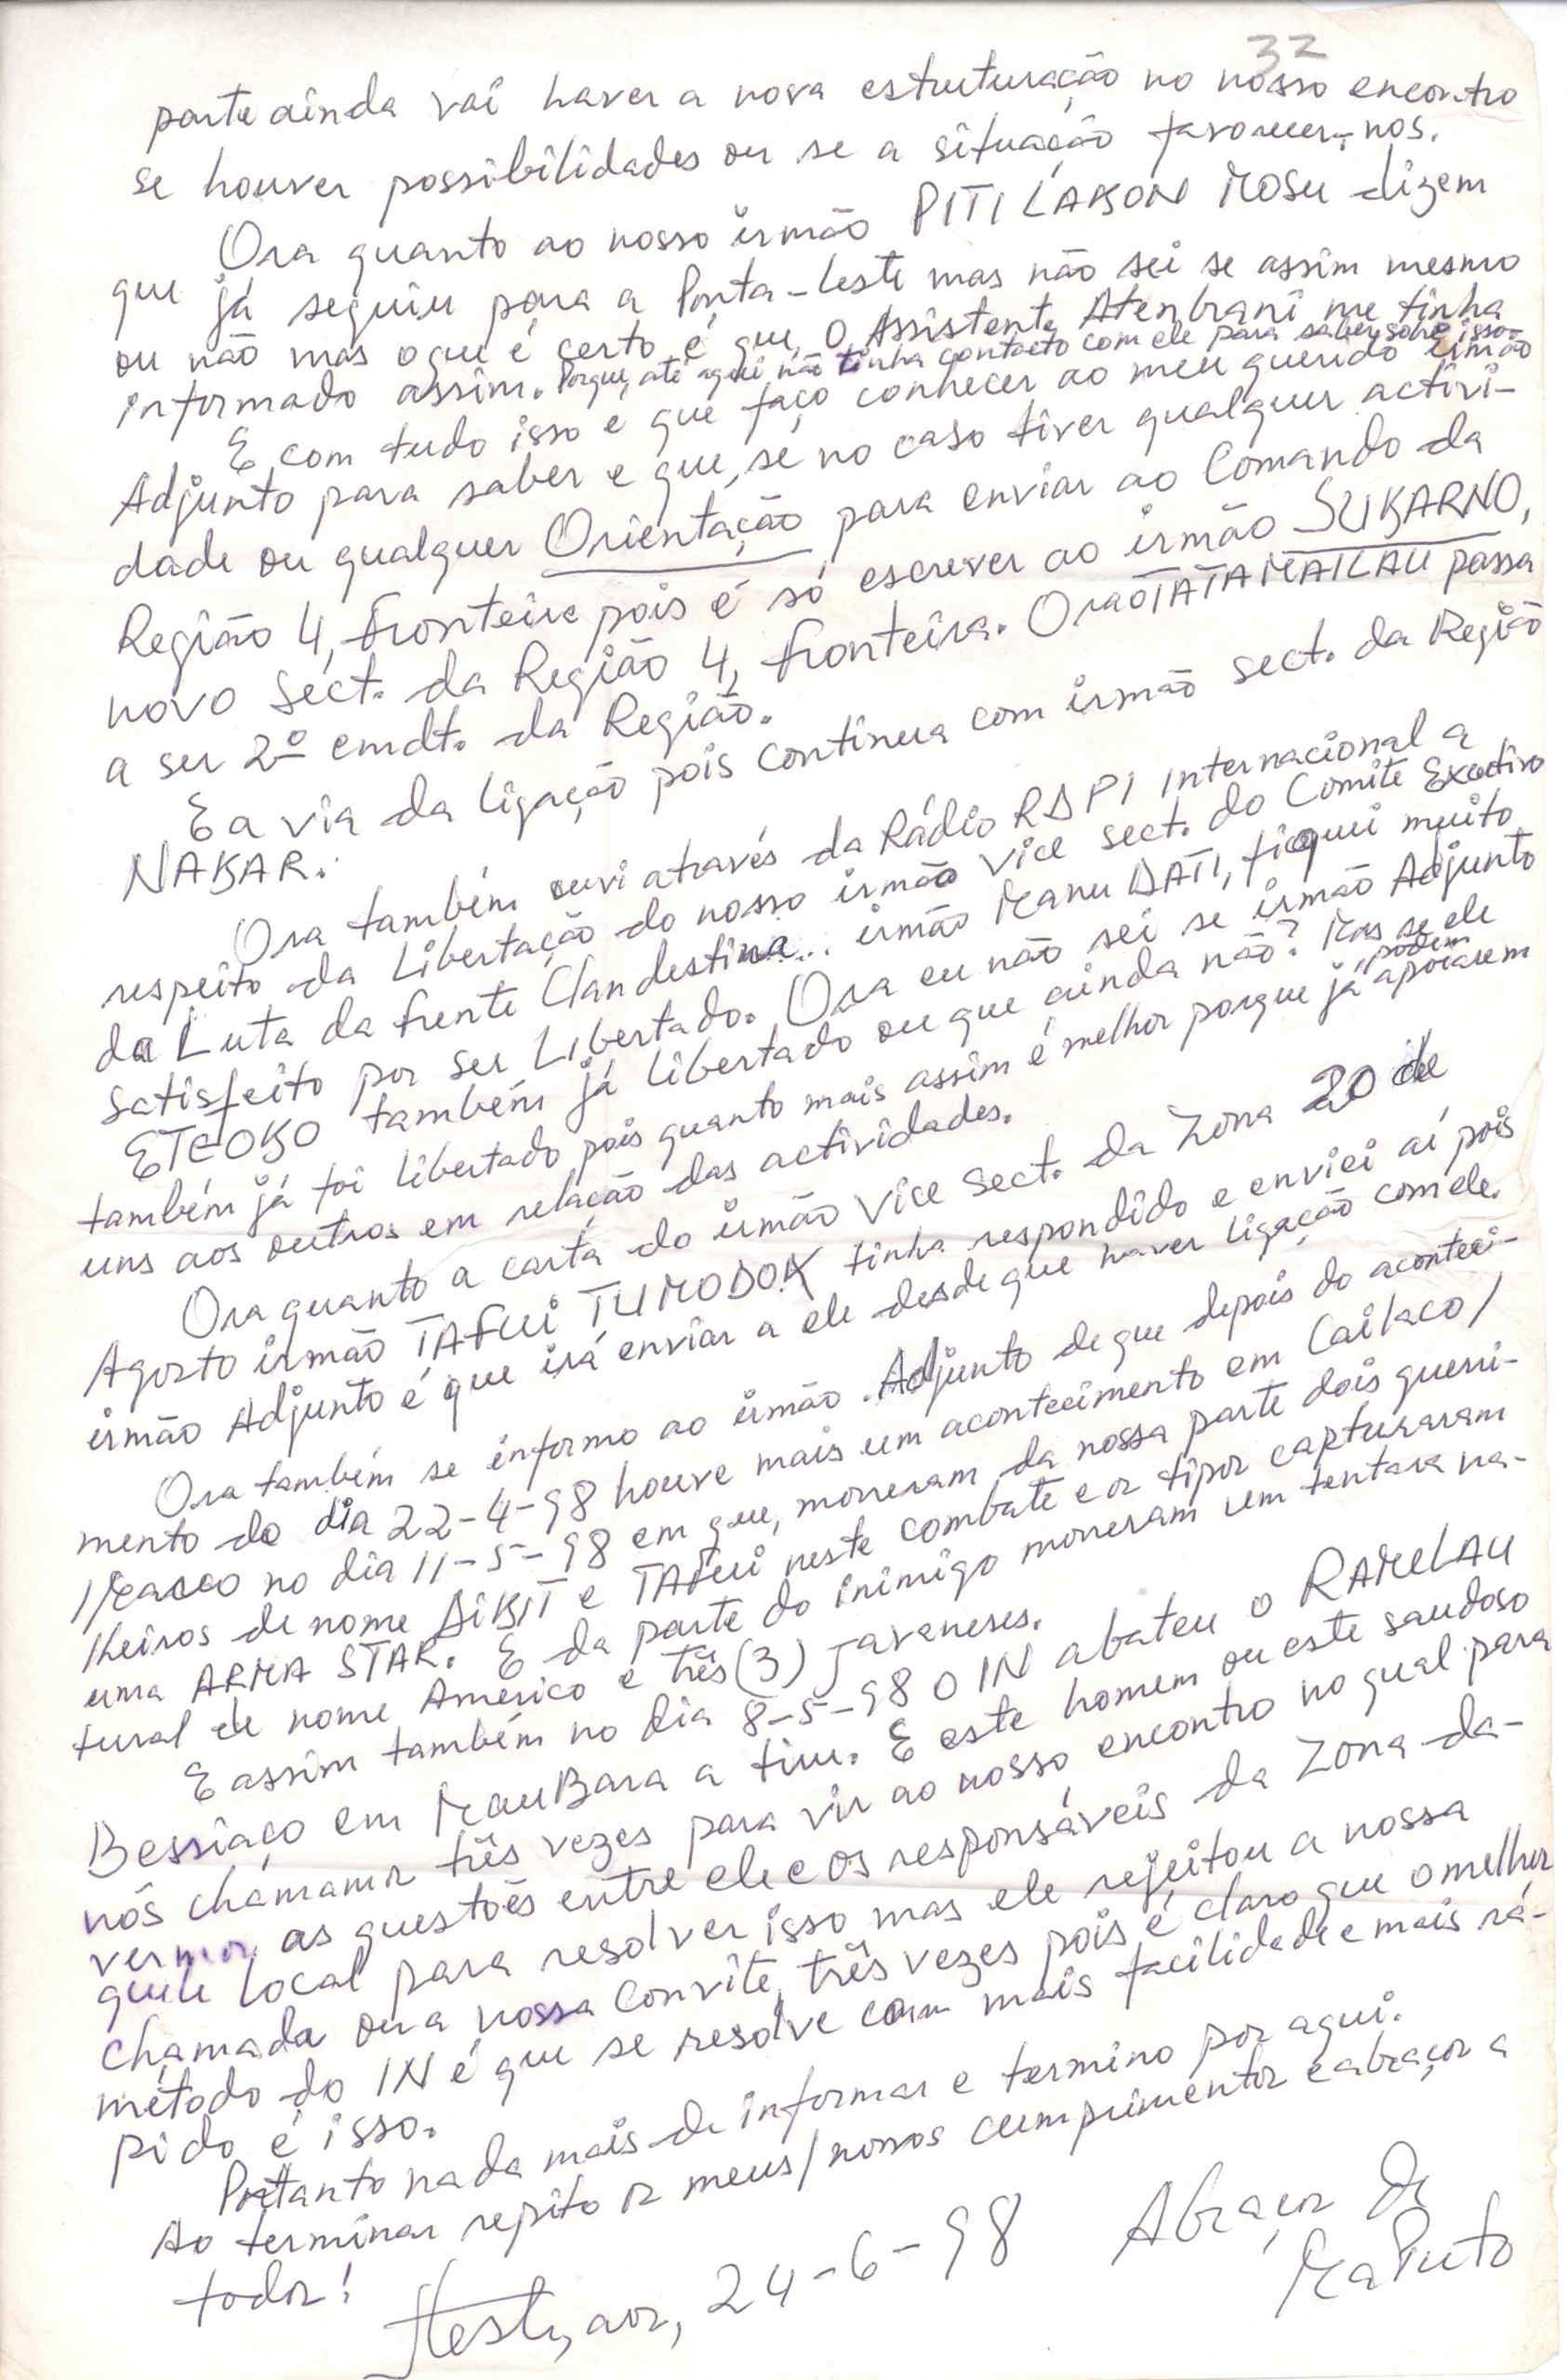 32
parte ainda vai haver a nova estruturação no nosso encontro
se houver possibilidades ou se a situação favorecer-nos.
Ora quanto ao nosso irmão PITI LAKON MOSU dizem
que já seguiu para a Ponta-Leste mas não sei se assim mesmo
ou não mas o que é certo é que, O Assistente Atenbrani me tinha
informado assim. Porque, até aqui não tinha contacto com ele para saber sobre isso.
E com tudo isso e que faço conhecer ao meu querido irmão
Adjunto para saber e que, se no caso tiver qualquer activi-
dade ou qualquer Orientação para enviar ao Comando da
Região 4, fronteira pois é só escrever ao irmão SUKARNO,
novo Sect. da Região 4, fronteira. Ora o TATAMAILAU passa
a ser 2º cmdt. da Região.
E a via da ligação pois continua com irmão sect. da Região
NAKAR.
Ora também ouvi através da Rádio RDPI Internacional a
respeito da Libertação do nosso irmão Vice sect. do Comité Executivo
da Luta da frente Clandestina... irmão Manu DATI, fiquei muito
satisfeito por ser Libertado. Ora eu não sei se irmão Adjunto
ETEOKO também já libertado ou que ainda não? Mas se ele
também já foi libertado pois quanto mais assim é melhor porque já podem apoiarem
uns aos outros em relação das actividades.
Ora quanto a carta do irmão Vice Sect. da Zona 20 de
Agosto irmão TAFUI TUMODOK tinha respondido e enviei aí pois
irmão Adjunto é que irá enviar a ele desde que haver ligação com ele.
Ora também se informo ao irmão Adjunto de que depois do aconteci-
mento do dia 22-4-98 houve mais um acontecimento em Cailaco/
/Heacco no dia 11-5-98 em que, morreram da nossa parte dois guerri-
lheiros de nome DIKIT e TAFUI neste combate e os tipos capturaram
uma ARMA STAR. E da parte do inimigo morreram um tentara na-
tural de nome Américo e três (3) javaneses.
E assim também no dia 8-5-98 O IN abateu o RAMELAU
Bessiaço em MauBara a tiru. E este homem ou este saudoso
nós chamamos três vezes para vir ao nosso encontro no qual para
vermos as questões entre ele e os responsáveis da Zona da-
quele local para resolver isso mas ele rejeitou a nossa
chamada ou a nossa convite, três vezes pois é claro que o melhor
método do IN é que se resolve com mais facilidade e mais rá-
pido é isso.
Portanto nada mais de informar e termino por aqui.
Ao terminar repito os meus/nossos cumprimentos e abraços a
todos!
24-6-98
Abraços de
MaPuto